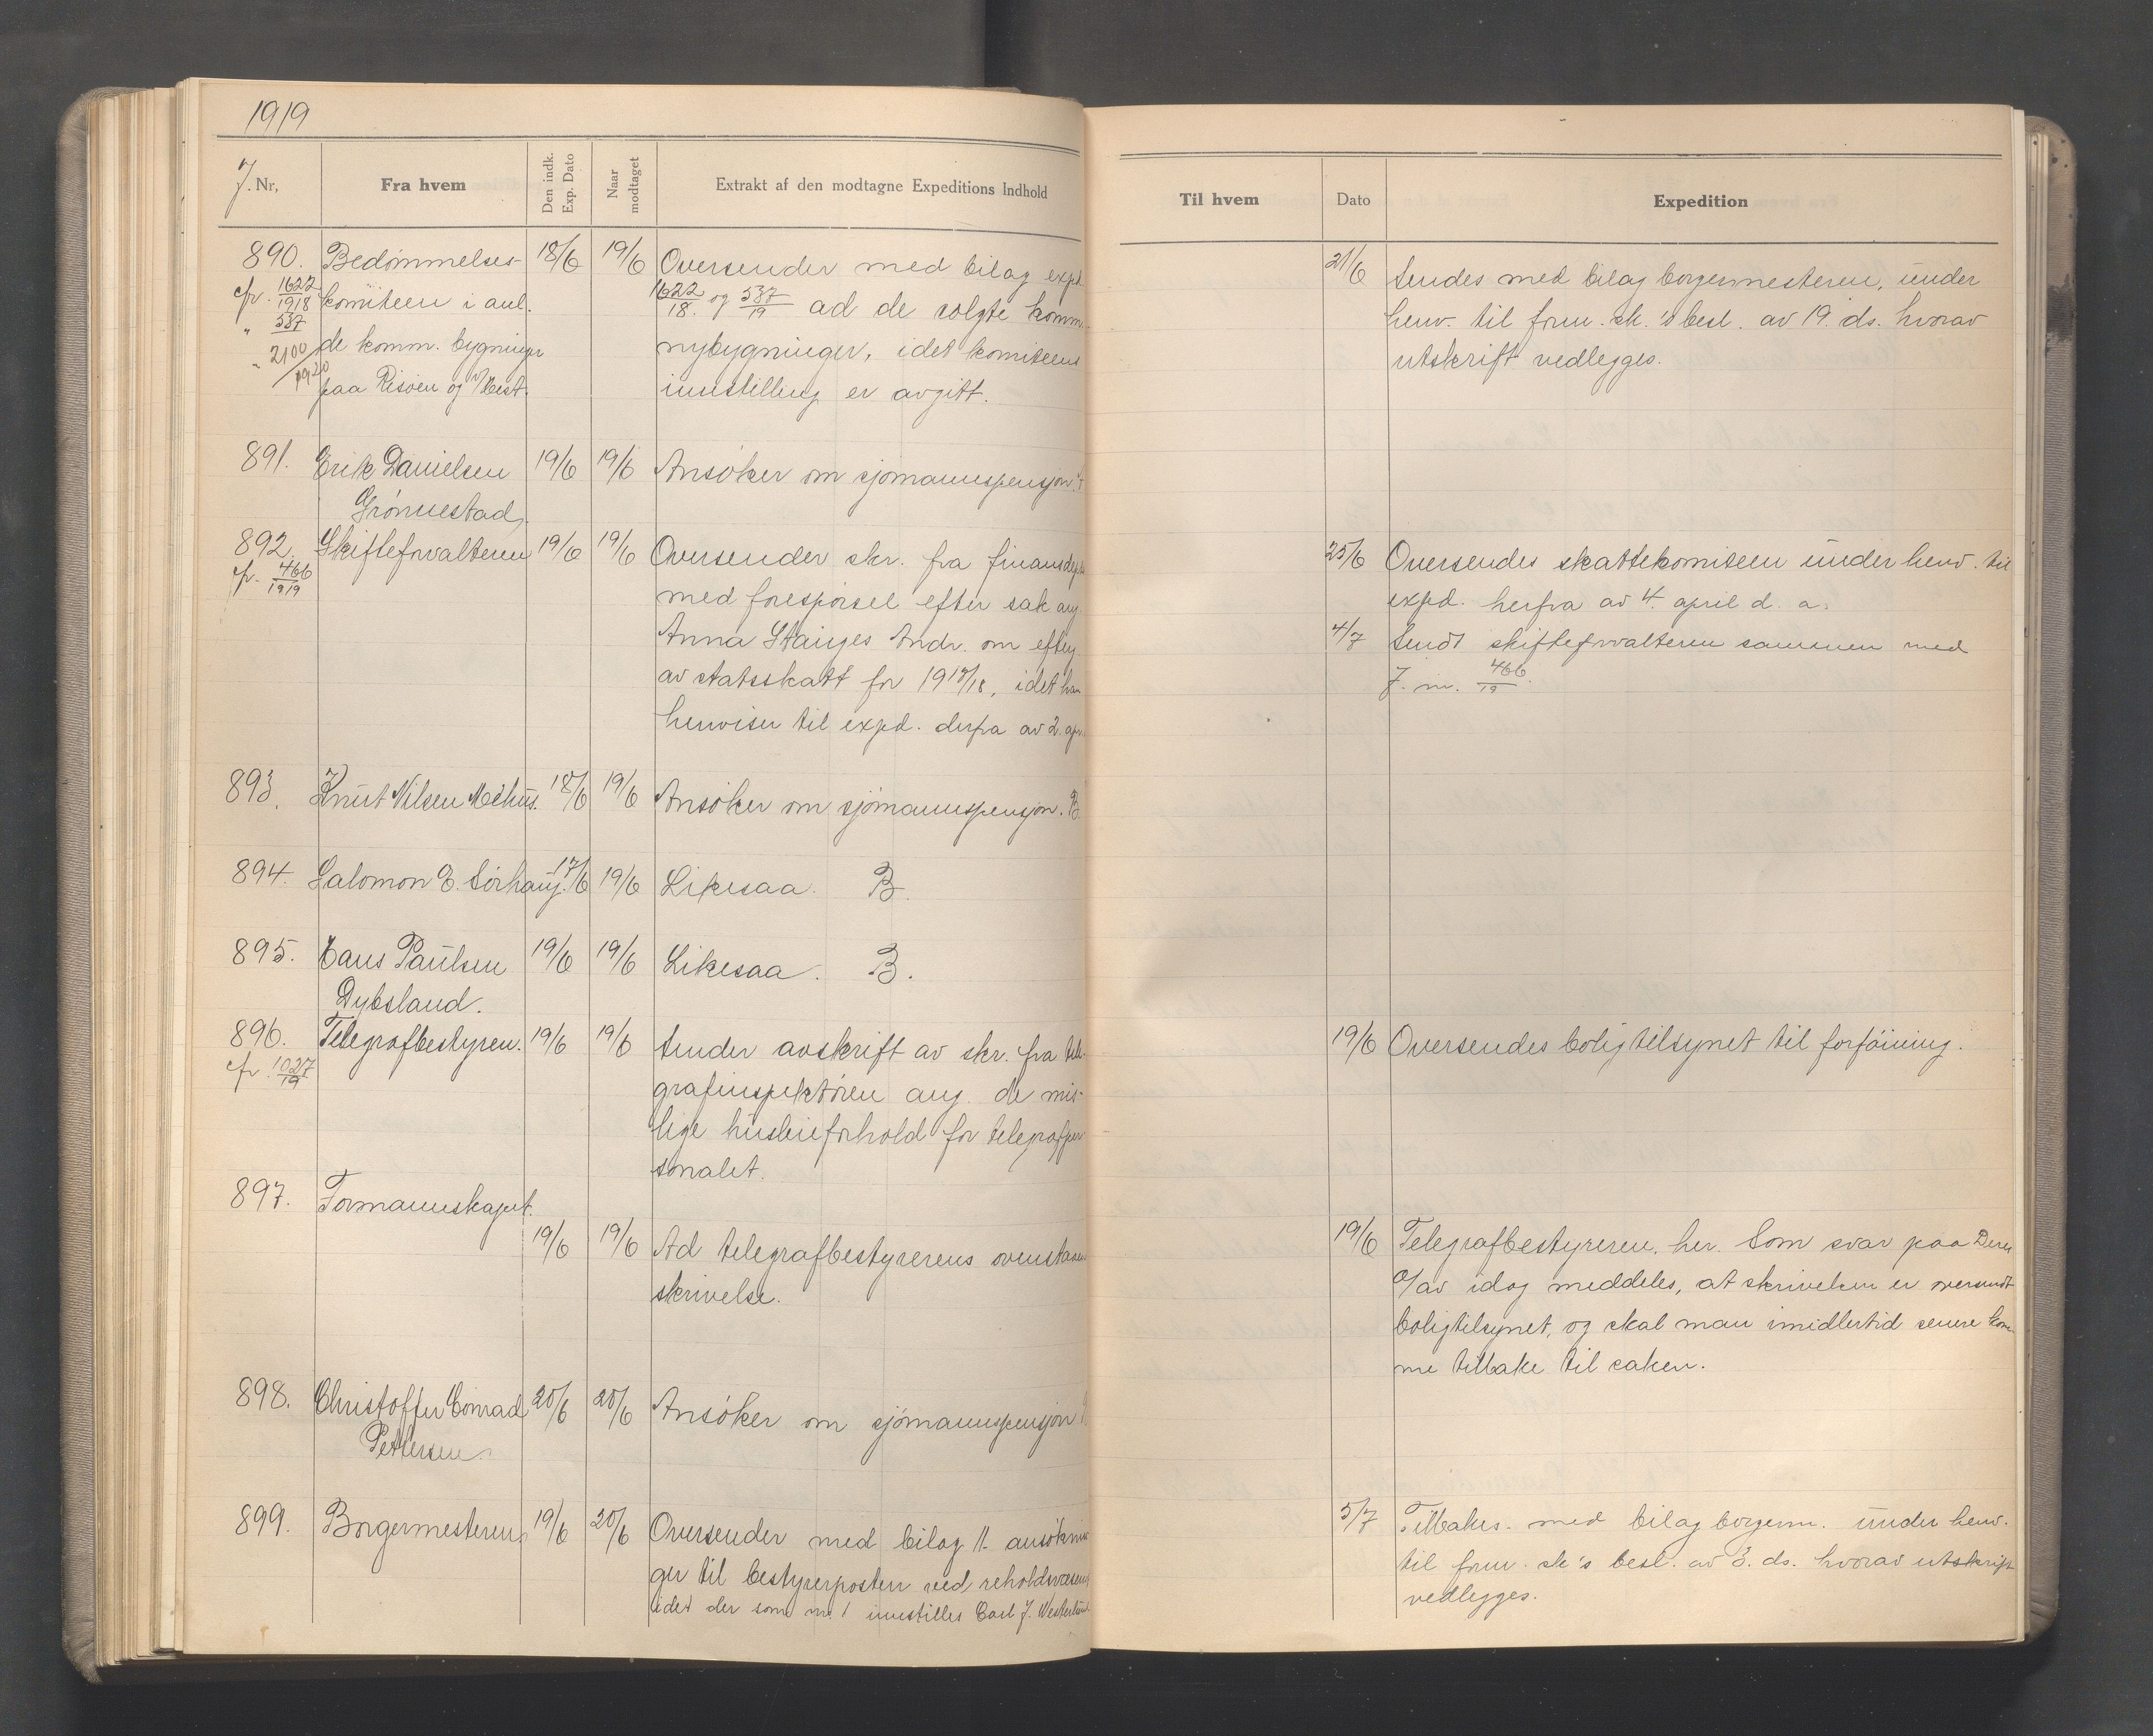 1919
J. Nr,
Fra hvem
Den indk. Exp. Dato
Naar modtaget
Extrakt af den modtagne Expeditions Indhold
890.
cfr. 1622/1918
" 537
" 2100/1920
Bedømmelses-
komiteen i anl.
de komm. bygninger
paa Risøen og v/ Hest.
18/6
19/6
Oversender med bilag expd.
1622/18. og 537/19 ad de solgte komm.
nybygninger, idet komiteens
innstilling er avgitt.
891.
Erik Danielsen
Grønnestad.
19/6
19/6
Ansøker om sjømannspensjon.
892.
cfr. 466/1919
Skifteforvalteren
19/6
19/6
Oversender skr. fra finansdept.
med forespørsel efter sak ang.
Anna Stanges Andr. om efterg.
av statsskatt for 1917/18, idet han
henviser til expd. derfra av 2. apr.
893.
Knut Nilsen Mehus.
18/6
19/6
Ansøker om sjømannspensjon. B.
894.
Salomon E. Sørhaug.
17/6
19/6
Likesaa. B.
895.
Hans Paulsen
Dybsland.
19/6
19/6
Likesaa. B.
896.
cfr. 1027/19
Telegrafbestyren.
19/6
19/6
Sender avskrift av skr. fra tele-
grafinspektøren ang. de mis-
lige husleieforhold for telegrafper-
sonalet.
897.
Formannskapet.
19/6
19/6
Ad telegrafbestyrerens ovenstaaen.
skrivelse.
898.
Christoffer Conrad
Pettersen
20/6
20/6
Ansøker om sjømannspensjon
899.
Borgermesteren
19/6
20/6
Oversender med bilag 11 ansøknin-
ger til bestyrerposten ved reholdsvæsenet
idet der som nr. 1 innstilles Carl J. Westerlund
Til hvem
Dato
Expedition
21/6
Sendes med bilag borgermesteren, under
henv. til form. sk.'s besl. av 19. ds. hvorav
utskrift vedlegges.
25/6
Oversendes skattekomiteen under henv. til
expd. herfra av 4. april d. a.
4/7
Sendt skifteforvalteren sammen med
J. nr. 466/19.
19/6
Oversendes boligtilsynet til forføining.
19/6
Telegrafbestyreren, her. Som svar paa Deres
o/av idag meddeles, at skrivelsen er oversendt
boligtilsynet, og skal man imidlertid senere kom-
me tilbake til saken.
5/7
Tilbakes. med bilag borgerm. under henv.
til form. sk's besl. av 3. ds. hvorav utskrift
vedlegges.